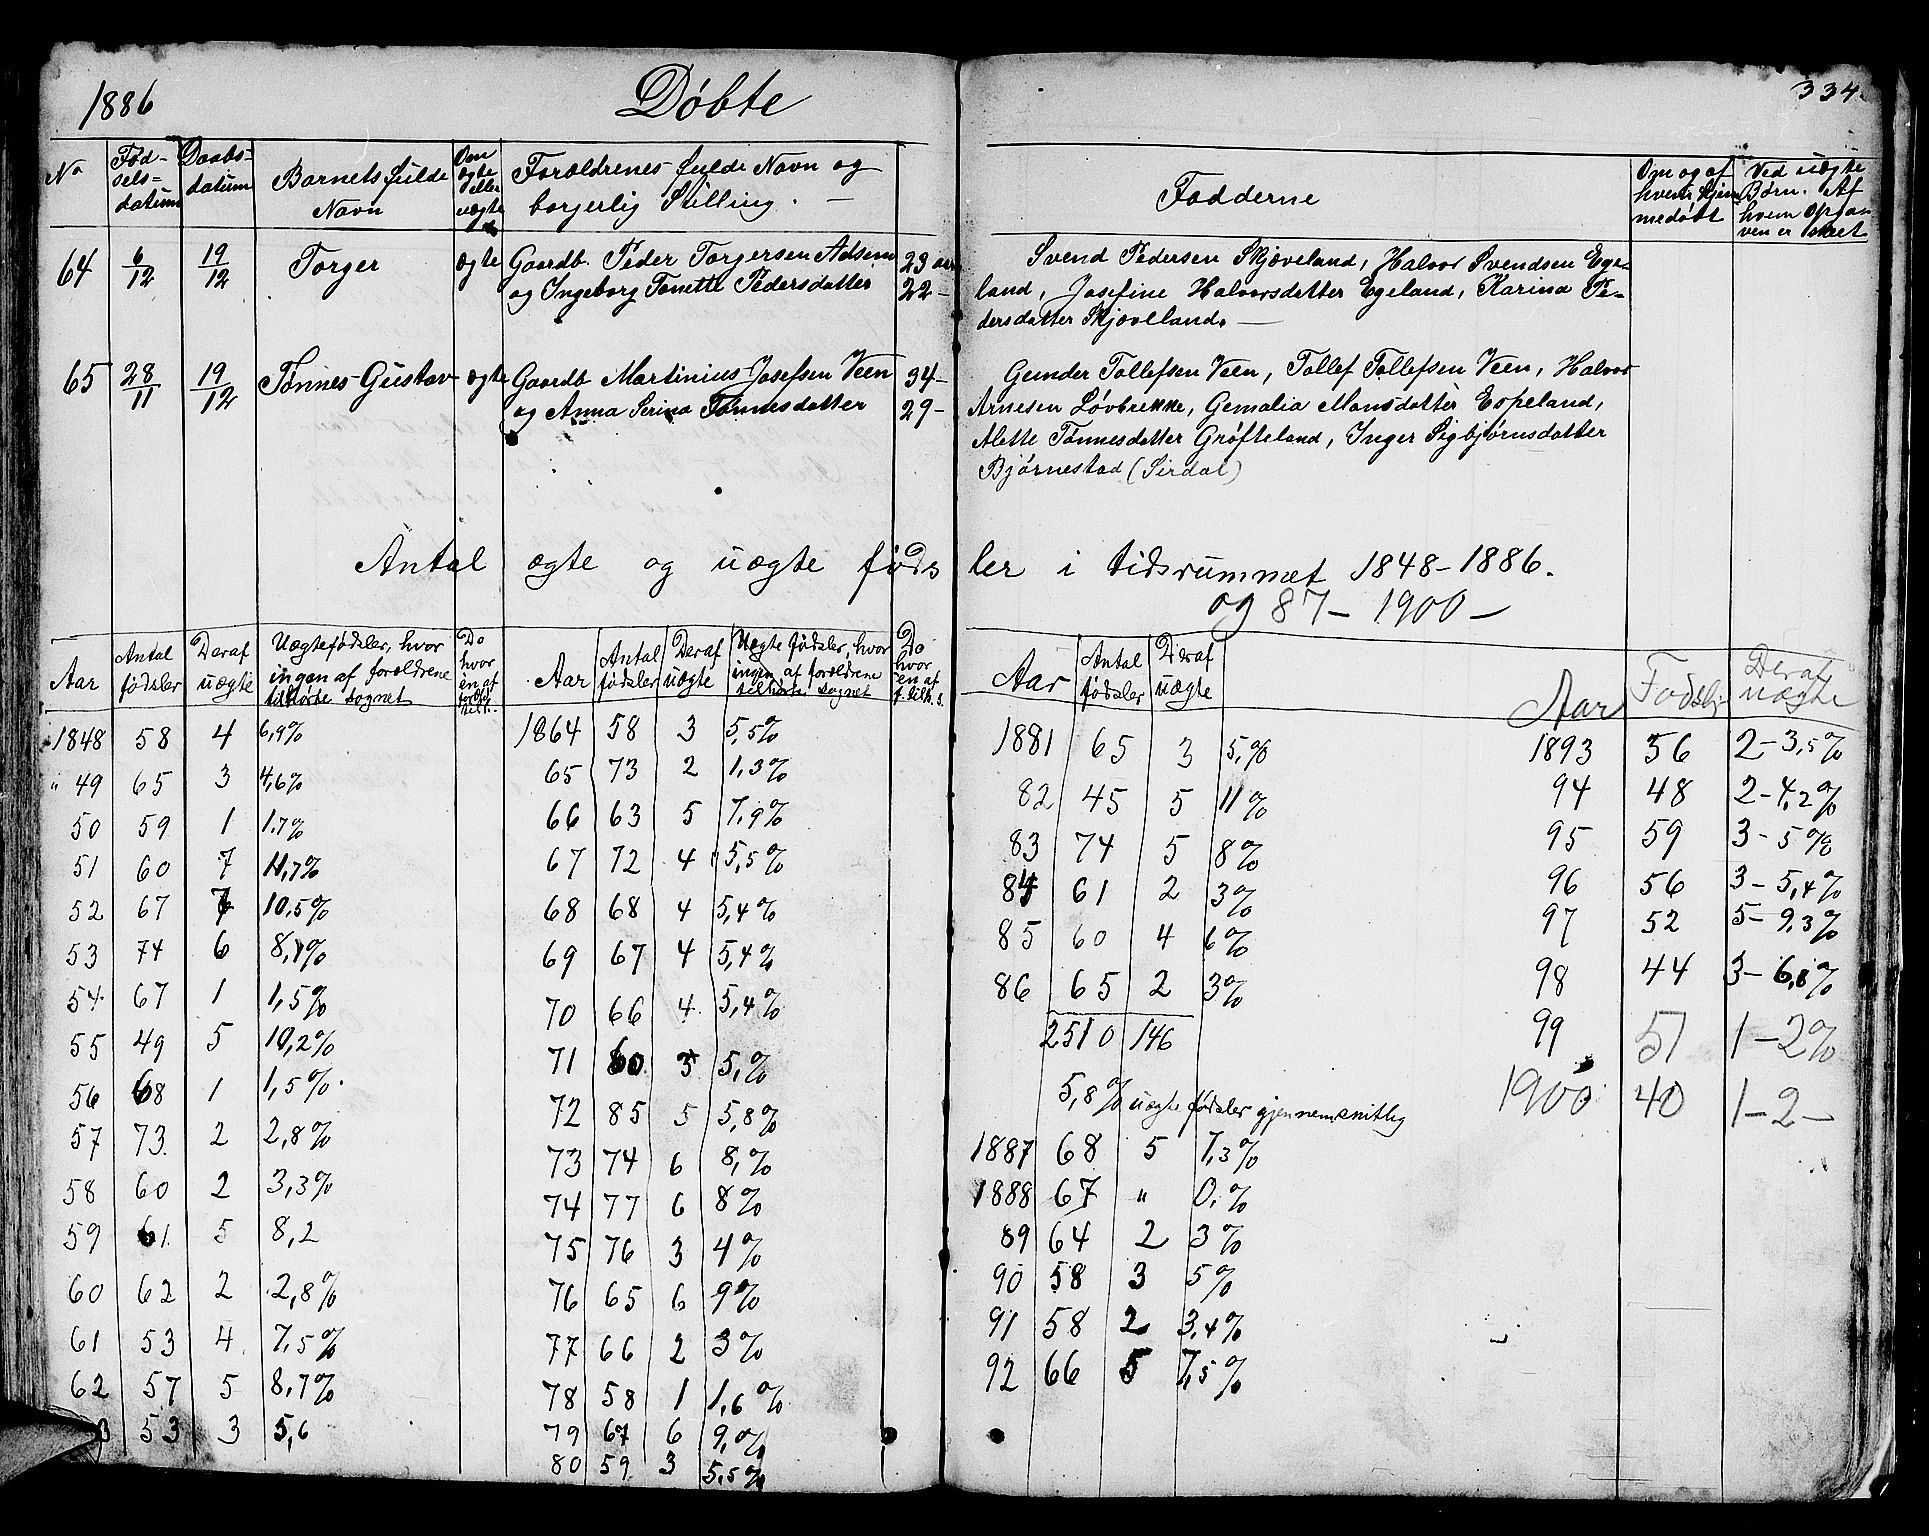 1886 Døbte 334.
No Fødselsdatum Daabsdatum Barnets fulde Navn Om ægte eller uægte Forældrenes fulde Navn og borgerlig Stilling. — Fadderne Om og af hvem hjemmedøbt Ved uægte Børn. Af hvem Opgaven er skeet
64 6/12 19/12 Torger ægte Gaardb. Peder Torgersen 23 aar Svend Pedersen Skjæveland, Halvor Svendsen Ege-
og Ingeborg Tonette Pedersdatter 22 – land, Josefine Halvorsdatter Egeland, Karina Pe-
dersdatter Skjæveland. —
65 28/11 19/12 Tønnes Gustav ægte Gaardb Martinius Josefsen Veen 34 – Gunder Tollefsen Veen, Tollef Tollefsen Veen, Halvor
og Anna Serina Tønnesdatter 29 – Arnesen Løvbrekke, Gemalia Monsdatter Espeland,
Alette Tønnesdatter Grøfteland, Inger Sigbjørnsdatter
Bjørnestad (Sirdal)
Antal ægte og uægte fødsler i tidsrummet 1848–1886.
og 87 – 1900 –
Aar Antal fødsler Deraf uægte Uægte fødsler, hvor ingen af forældrene tilhørte sognet Do hvor en af
1848 58 4 6,9%
" 49 65 3 4,6%
50 59 1 1,7%
51 60 7 11,7%
52 67 7 10,5%
53 74 6 8,1%
54 67 1 1,5%
55 49 5 10,2%
56 68 1 1,5%
57 73 2 2,8%
58 60 2 3,3%
59 61 5 8,2
60 62 2 2,8%
61 53 4 7,5%
62 57 5 8,7%
3 53 3 5,6
Aar Antal fødsler Deraf uægte Uægte fødsler, hvor ingen af forældrene tilhørte sognet Do hvor en af f. tilh. s.
1864 58 3 5,5%
65 73 2 1,3%
66 63 5 7,9%
67 72 4 5,5%
68 68 4 5,4%
69 67 4 5,4%
70 66 4 5,4%
71 60 3 5,%
72 85 5 5,8%
73 74 6 8,%
74 77 6 8%
75 76 3 4%
76 65 6 9%
77 66 2 3%
78 58 1 1,6%
79 67 6 9,%
80 59 3 5,5%
Aar Antal fødsler Deraf uægte
1881 65 3 5,%
82 45 5 11%
83 74 5 8%
84 61 2 3%
85 60 4 6%
86 65 2 3%
2510 146
5,8% uægte fødsler gjennemsnitlig
1887 68 5 7,3%
1888 67 " 0,%
89 64 2 3%
90 58 3 5%
91 58 2 3,4%
92 66 5 7,5%
Aar Deraf uægte
1893 56 2 – 3,5%
94 48 2 – 4,2%
95 59 3 – 5%
96 56 3 – 5,4%
97 52 5 – 9,3%
98 44 3 – 6,8%
99 51 1 – 2%
1900 40 1 – 2 –